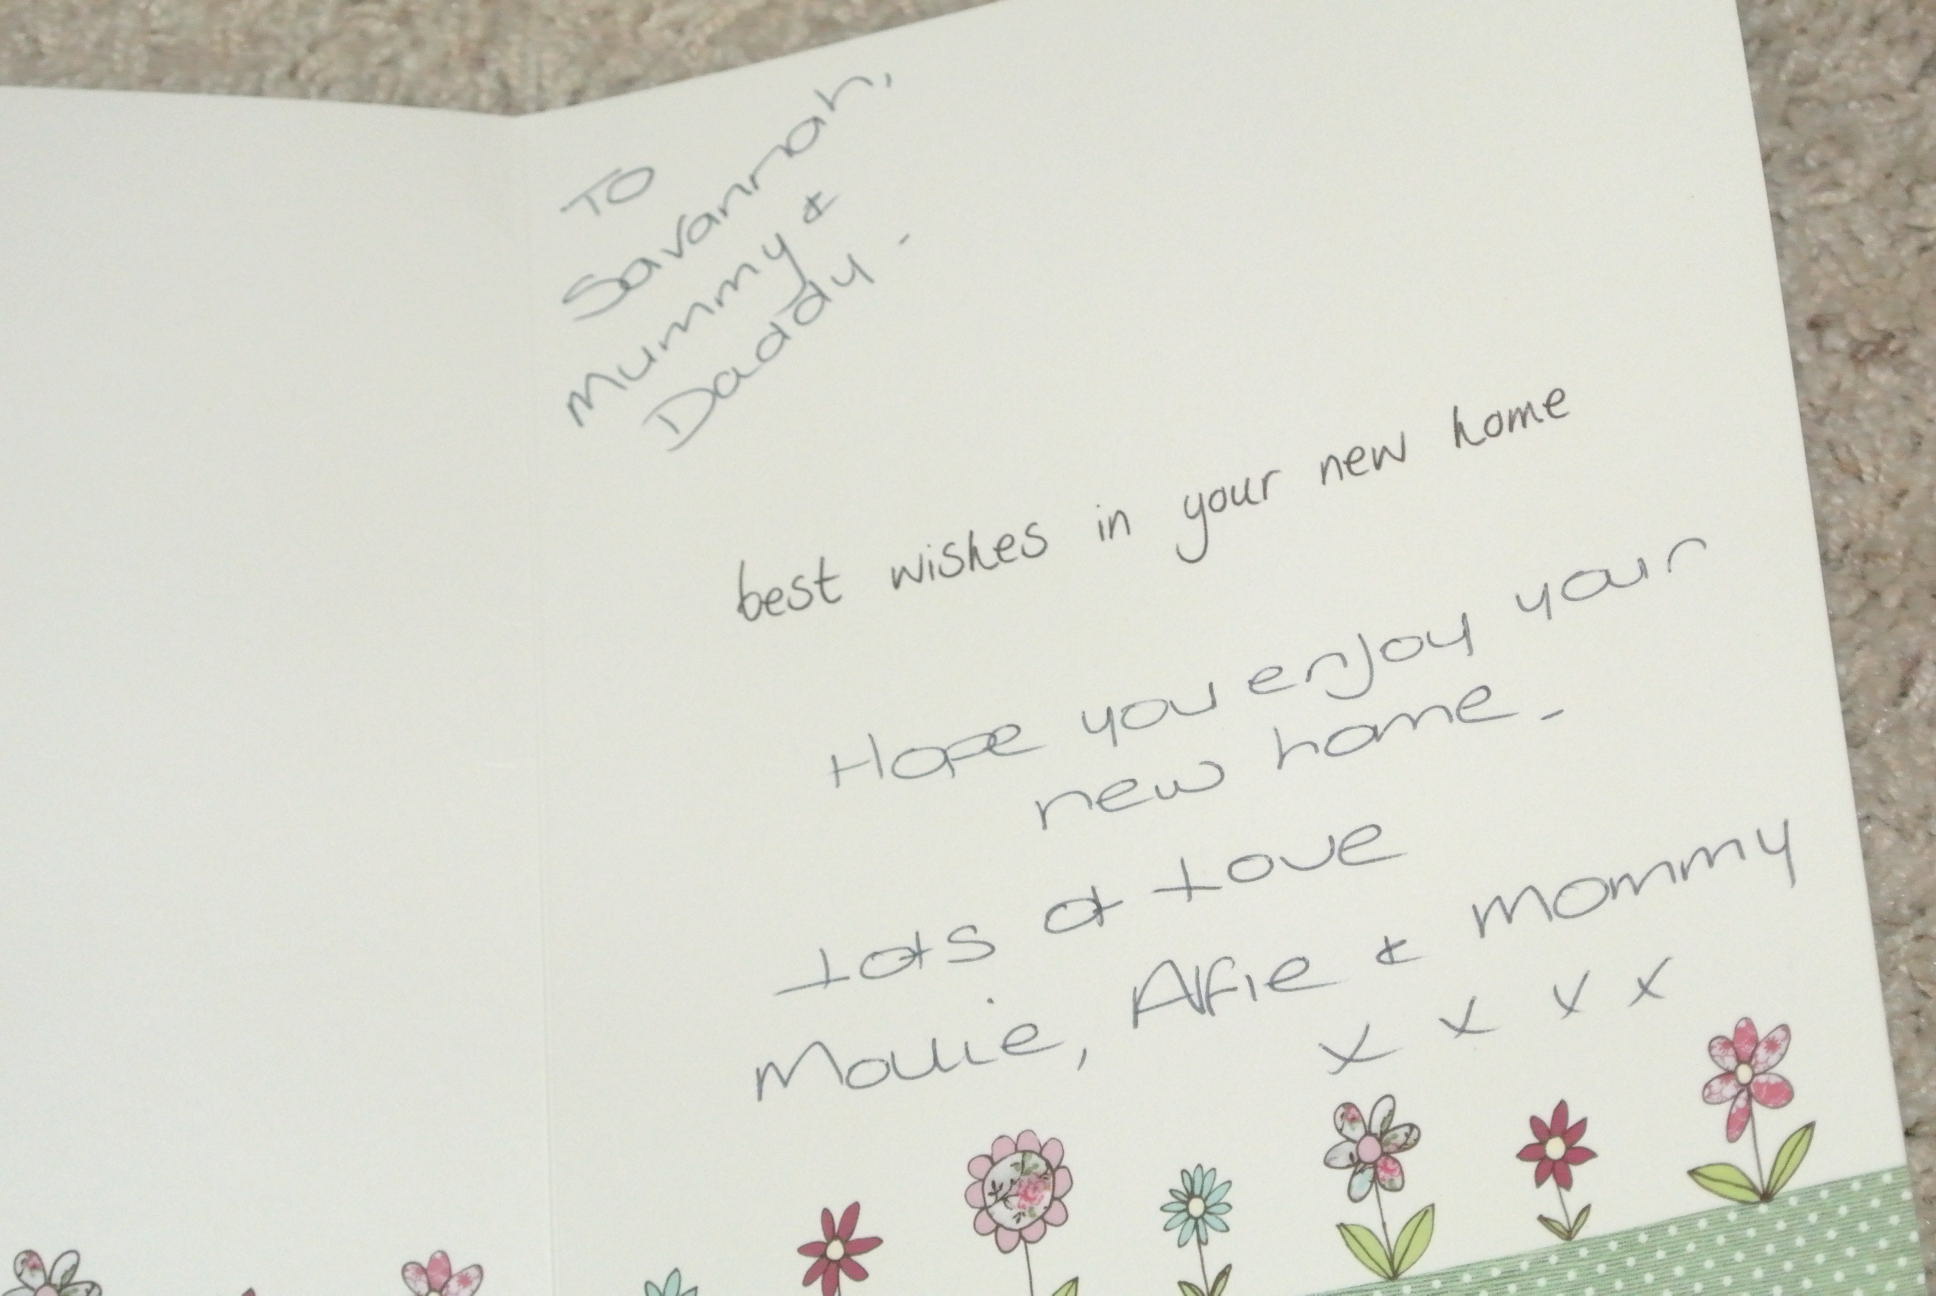 To
Savannah,
Mummy &
Daddy.
best wishes in your new home
Hope you enjoy your
new home.
Lots of Love
Mollie, Alfie & Mommy
x x x x